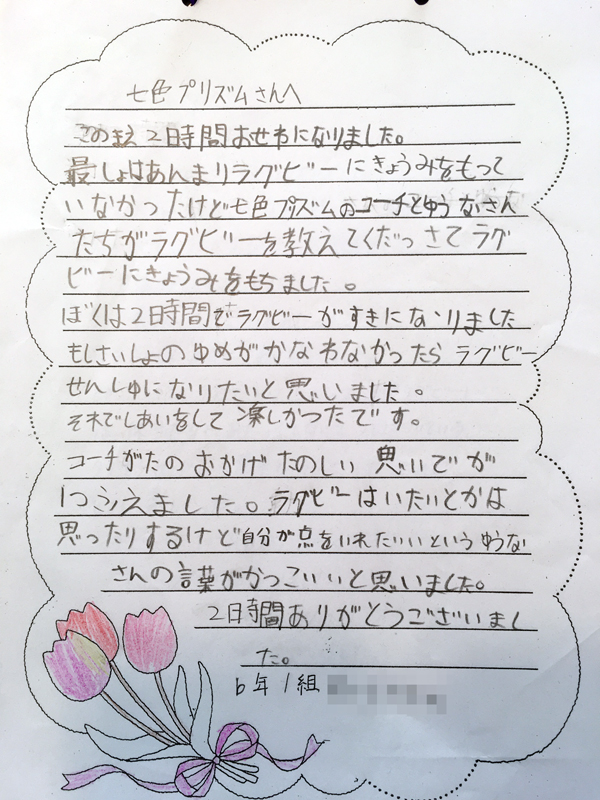 七色プリズムさんへ
このまえ2日時間おせわになりました。
最しょはあんまりラグビーにきょうみをもって
いなかったけど七色プリズムのコーチとゆうなさん
たちがラグビーを教えてくだっさてラグ
ビーにきょうみをもちました。
ぼくは2日時間でラグビーがすきになりました
もしさいしょのゆめがかなわなかったらラグビー
せんしゅになりたいと思いました。
それでしあいをして楽しかったです。
コーチがたのおかげたのしい思いでが
1つふえました。ラグビーはいたいとかは
思ったりするけど自分が点をいれたいいというゆうな
さんの言葉がかっこいいと思いました。
2日時間ありがとうございまし
た。
6年1組